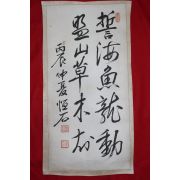 誓海魚龍動
盟山草木知
丙辰仲夏 恒石